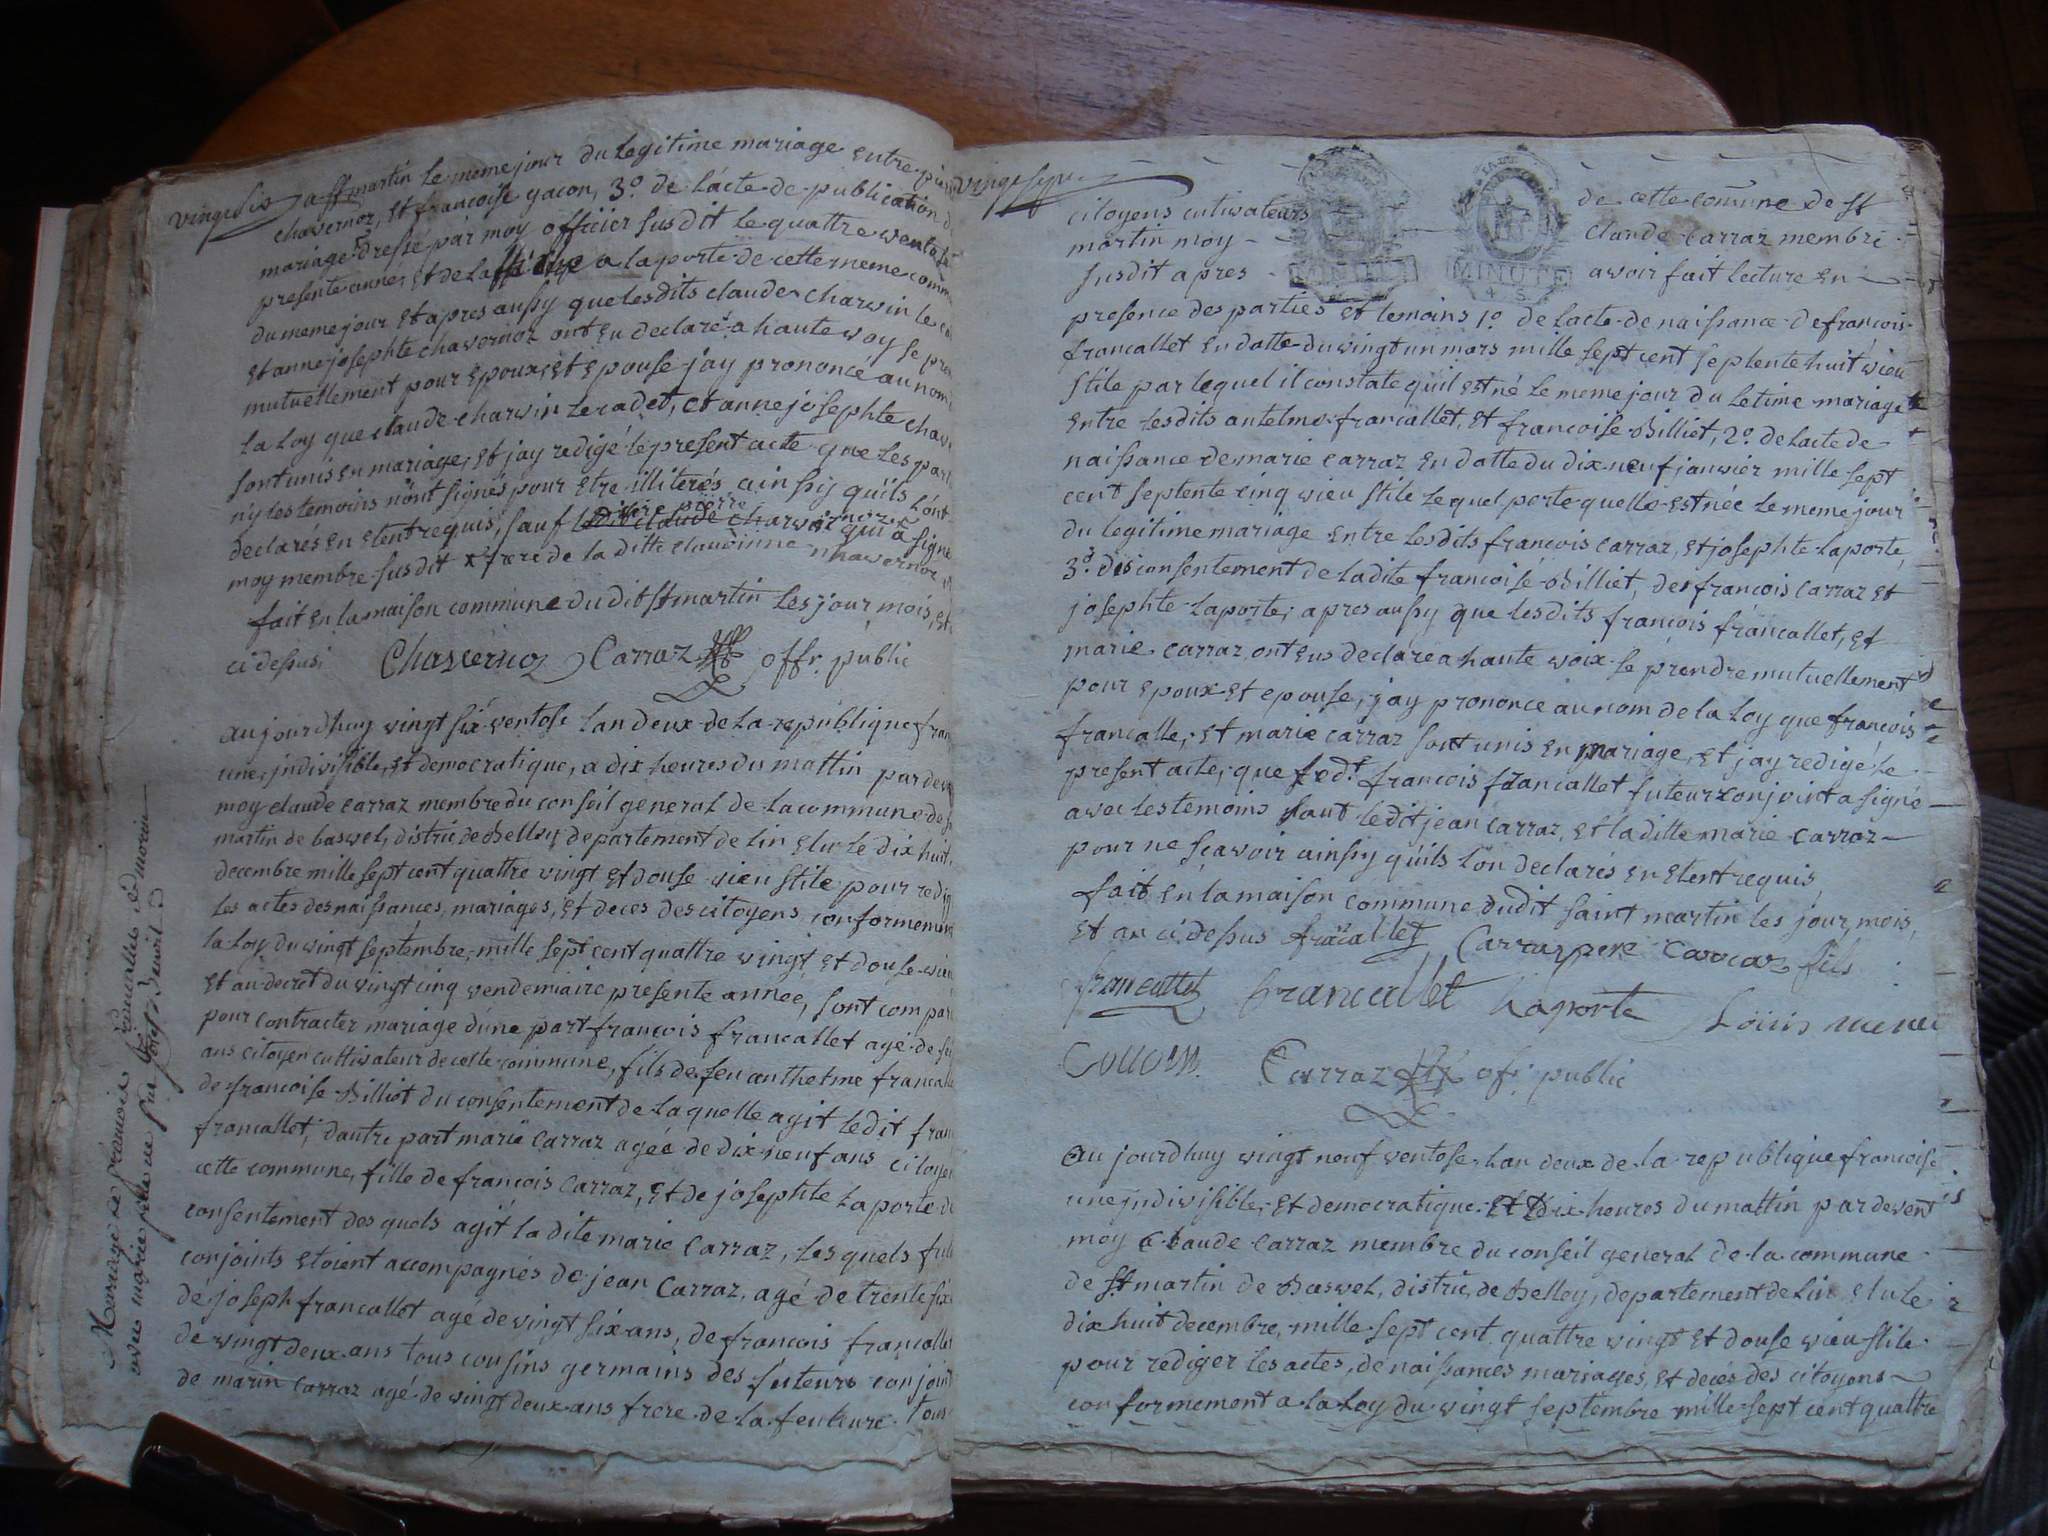 vingt six
a st martin le meme jour du legitime mariage entre
chavernoz, et francoise gacon, 3o. de l'acte de publication
mariage dressé par moy officier susdit le quattre ventose
presente anne, et de la affiche a la porte de cette meme
du meme jour et apres aussy que lesdits claude charvin le
et anne josephte chavernoz ont eu declaré a haute voy se
mutuellement pour epoux, et epouse j'ay prononcé au nom
la loy que claude charvin le cadet, et anne josephte
sont unis en mariage, et j'ay redigé le present acte que les
n'y les temoins n'ont signés pour etre illiterés ainssy qu'ils l'ont
declarés en etent requis, sauf qui a signé
moy membre susdit x frere de la ditte claudinne chavernoz
fait en la maison commune dudit st martin les jour mois, et
ci dessus
Chavernoz Carraz offr. public
Mariage de francois francallet
avec marie
aujourdhuy vingt six ventose lan deux de la republique
une, indivisible, et democratique, a dix heures du mattin
moy claude carraz membre du conseil general de la commune de
martin de bavwel, distric de Belley departement de lin elu le dix huit
decembre mille sept cent quattre vingt et douse vieu stile pour
les actes des naissances, mariages, et deces des citoyens
la loy du vingt septembre, mille sept cent quattre vingt et douse
et au decret du vingt cinq vendemiaire presente année, sont
pour contracter mariage d'une part francois francallet agé de
ans citoyen cultivateur de cette commune, fils de feu anthelme
de francoise Billiot du consentement de laquelle agit ledit
francallet, d'autre part marie carraz agée de dix neuf ans
cette commune, fille de francois carraz, et de josephte laporte
consentement des quels agit la dite marie carraz, les quels
conjoints etoient accompagnés de jean carraz, agé de trente six
de joseph francallet agé de vingt six ans, de francois
de vingt deux ans tous cousins germains des futeurs
de marin carraz agé de vingt deux ans frere de la feuteure
vingt sept
citoyens cutivateurs de cette comune de st
martin moy claude carraz membre
susdit apres avoir fait lecture en
MINUTE
MINUTE
presence des parties et temoins 1o. de lacte de naissance de francois
francallet en datte du vingt un mars mille sept cent septente huit vieu
stile par lequel il constate qu'il est né le meme jour du letime mariage
entre lesdits antelme francallet, et francoise Billiet, 2o. de lacte de
naissance de marie carraz en datte du dix neuf janvier mille sept
cent septente cinq vieu stile lequel porte quelle est née le meme jour
du legitime mariage entre lesdits francois carraz, et josephte laporte,
3o. du consentement de ladite francoise Billiet, des francois carraz et
josephte laporte, apres aussy que lesdits francois francallet, et
marie carraz ont eus declare a haute voix se prendre mutuellement
pour epoux et epouse, j'ay prononce au nom de la loy que francois
francalle, et marie carraz sont unis en mariage, et j'ay redigé le
present acte, que francois francallet futeur conjoint a signé
avec les temoins sauf ledit jean carraz, et la ditte marie carraz
pour ne sçavoir ainsy qu'ils l'on declarés en etent requis
fait en la maison commune dudit saint martin les jour, mois,
et an ci dessus francallet Carraz pere carraz fils
francallet francallet Laporte Loüis
Carraz ofr public
Au jourdhuy vingt neuf ventose, lan deux de la republique francoise
une indivisible, et democratique et dix heures du mattin par devent
moy claude carraz membre du conseil general de la commune
de st martin de Bavwel, distric, de Belley, departement de lin elu le
dix huit decembre, mille sept cent quattre vingt et douse vieu stile
pour rediger les actes, de naissances mariages, et decés des citoyens
conformement a la loy du vingt septembre mille sept cent quattre